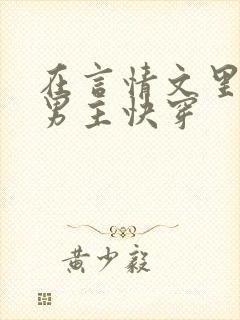 在言情文里
男主快穿
黄少毅